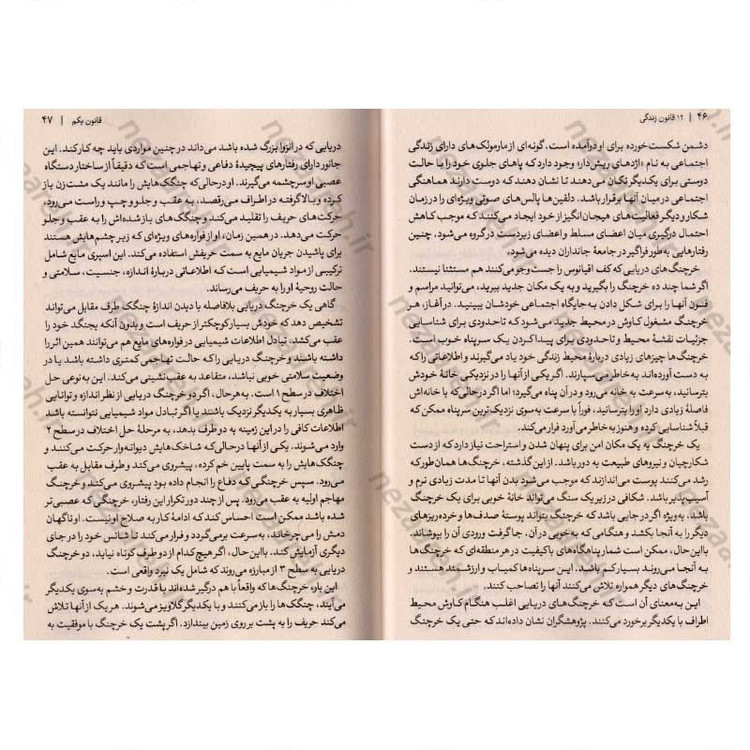 ۴۶ | ۱۲ قانون زندگی
دشمن شکست‌خورده برای او درآمده است. گونه‌ای از مارمولک‌های دارای زندگی
اجتماعی به نام «اژدهای ریش‌دار» وجود دارد که پاهای جلوی خود را با حالت
دوستی برای یکدیگر تکان می‌دهند تا نشان دهند که دوست دارند هماهنگی
اجتماعی در میان آنها برقرار باشد. دلفین‌ها پالس‌های صوتی ویژه‌ای را در زمان
شکار و دیگر فعالیت‌های هیجان‌انگیز از خود ایجاد می‌کنند که موجب کاهش
احتمال درگیری میان اعضای مسلط و اعضای زیردست در گروه می‌شود. چنین
رفتارهایی به‌طور فراگیر در جامعهٔ جانداران دیده می‌شود.
خرچنگ‌های دریایی که کف اقیانوس را جست‌وجو می‌کنند هم مستثنا نیستند.
اگر شما چند ده خرچنگ را بگیرید و به یک مکان جدید ببرید، می‌توانید مراسم و
فنون آنها را برای شکل دادن به جایگاه اجتماعی خودشان ببینید. در آغاز، هر
خرچنگ مشغول کاوش در محیط جدید می‌شود که تا حدودی برای شناسایی
جزئیات نقشهٔ محیط و تا حدودی برای پیدا کردن یک سرپناه خوب است.
خرچنگ‌ها چیزهای زیادی دربارهٔ محیط زندگی خود یاد می‌گیرند و اطلاعاتی را که
به دست آورده‌اند به‌خاطر می‌سپارند. اگر یکی از آنها را در نزدیکی خانهٔ خودش
بترسانید، به‌سرعت به خانه می‌رود و در آن پناه می‌گیرد؛ اما اگر در حالی‌که با خانه‌اش
فاصلهٔ زیادی دارد او را بترسانید، فوراً با سرعت به‌سوی نزدیک‌ترین سرپناه ممکن که
قبلاً شناسایی کرده و هنوز به خاطر می‌آورد فرار می‌کند.
یک خرچنگ به یک مکان امن برای پنهان شدن و استراحت نیاز دارد که از دست
شکارچیان و نیروهای طبیعت به دور باشد. از این گذشته، خرچنگ‌ها همان‌طور که
رشد می‌کنند پوست می‌اندازند که موجب می‌شود بدن آنها تا مدت زیادی نرم و
آسیب‌پذیر باشد. شکافی در زیر یک سنگ می‌تواند خانهٔ خوبی برای یک خرچنگ
باشد. به‌ویژه اگر در جایی باشد که خرچنگ بتواند پوستهٔ صدف‌ها و خرده‌ریزهای
دیگر را به آنجا بکشد و هنگامی که به‌خوبی در آن، جا گرفت ورودی آن را بپوشاند.
با این‌حال، ممکن است شمار پناهگاه‌های باکیفیت در هر منطقه‌ای که خرچنگ‌ها
به آنجا می‌روند بسیار کم باشد. این سرپناه‌ها کمیاب و ارزشمند هستند و
خرچنگ‌های دیگر همواره تلاش می‌کنند آنها را تصاحب کنند.
این به‌معنای آن است که خرچنگ‌های دریایی اغلب هنگام کاوش محیط
اطراف با یکدیگر برخورد می‌کنند. پژوهشگران نشان داده‌اند که حتی یک خرچنگ
قانون یکم | ۴۷
دریایی که در انزوا بزرگ شده باشد می‌داند در چنین مواردی باید چه کار کند. این
جانور دارای رفتارهای پیچیدهٔ دفاعی و تهاجمی است که دقیقاً از ساختار دستگاه
عصبی او سرچشمه می‌گیرند. او در حالی‌که چنگک‌هایش را مانند یک مشت‌زن باز
کرده و بالا گرفته در اطراف می‌رقصد، به عقب و جلو و چپ و راست می‌رود،
حرکت‌های حریف را تقلید می‌کند و چنگک‌های باز شده‌اش را به عقب و جلو
حرکت می‌دهد. در همین زمان، او از فواره‌های ویژه‌ای که زیر چشم‌هایش هستند
برای پاشیدن جریان مایع به سمت حریفش استفاده می‌کند. این اسپری مایع شامل
ترکیبی از مواد شیمیایی است که اطلاعاتی دربارهٔ اندازه، جنسیت، سلامتی و
حالت روحیهٔ او را به حریف می‌رساند.
گاهی یک خرچنگ دریایی بلافاصله با دیدن اندازهٔ چنگک طرف مقابل می‌تواند
تشخیص دهد که خودش بسیار کوچکتر از حریف است و بدون آنکه بجنگد خود را
عقب می‌کشد. تبادل اطلاعات شیمیایی در فواره‌های مایع هم می‌تواند همین اثر را
داشته باشند و خرچنگ دریایی را که حالت تهاجمی کمتری داشته باشد یا در
وضعیت سلامتی خوبی نباشد، متقاعد به عقب‌نشینی می‌کند. این به‌نوعی حل
اختلاف در سطح ۱ است. به‌هرحال، اگر دو خرچنگ دریایی از نظر اندازه و توانایی
ظاهری بسیار به یکدیگر نزدیک باشند یا اگر تبادل مواد شیمیایی نتوانسته باشد
اطلاعات کافی را در این زمینه به دو طرف بدهد، به مرحلهٔ حل اختلاف در سطح ۲
وارد می‌شوند. یکی از آنها در حالی‌که شاخک‌هایش دیوانه‌وار حرکت می‌کنند و
چنگک‌هایش را به سمت پایین خم کرده، پیشروی می‌کند و طرف مقابل به عقب
می‌رود. سپس خرچنگی که دفاع را انجام داده بود پیشروی می‌کند و خرچنگ
مهاجم اولیه به عقب می‌رود. پس از چند دور تکرار این رفتار، خرچنگی که عصبی‌تر
شده باشد ممکن است احساس کند که ادامهٔ کار به صلاح او نیست. او ناگهان
دمش را می‌چرخاند، به‌سرعت برمی‌گردد و فرار می‌کند تا شانس خود را در جای
دیگری آزمایش کند. با این‌حال، اگر هیچ‌کدام از دو طرف کوتاه نیاید، دو خرچنگ
دریایی به سطح ۳ از مبارزه می‌روند که شامل یک نبرد واقعی است.
این بار، خرچنگ‌ها که واقعاً با هم درگیر شده‌اند با قدرت و خشم به‌سوی یکدیگر
می‌آیند، چنگک‌ها را باز می‌کنند و با یکدیگر گلاویز می‌شوند. هر یک از آنها تلاش
می‌کند حریف را به پشت بر روی زمین بیندازد. اگر پشت یک خرچنگ با موفقیت به
nezaareh.ir